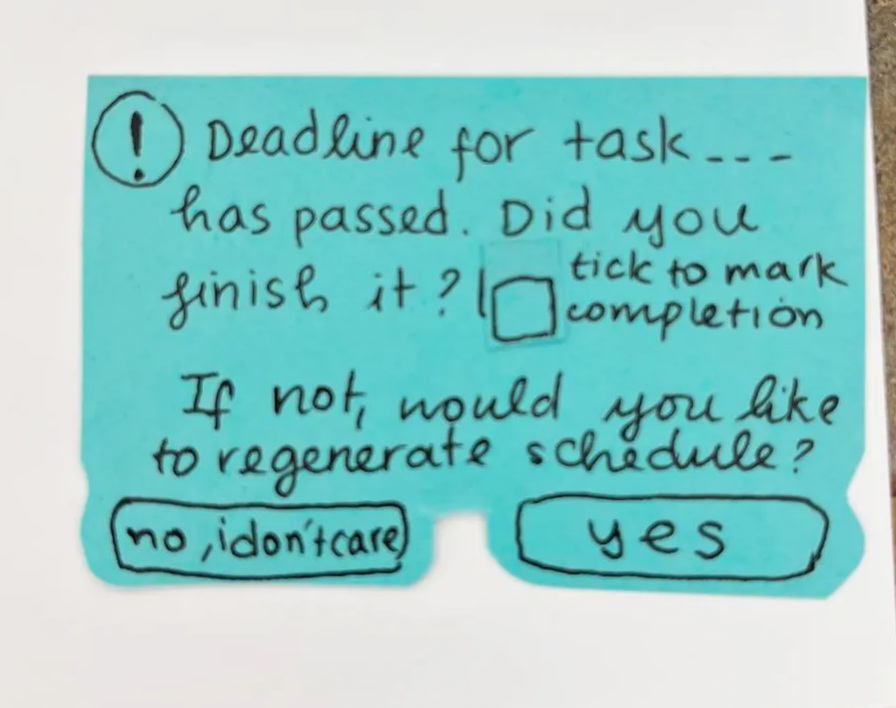 ! Deadline for task - - -
has passed. Did you
finish it? tick to mark
completion
If not, would you like
to regenerate schedule?
no, i don't care
yes